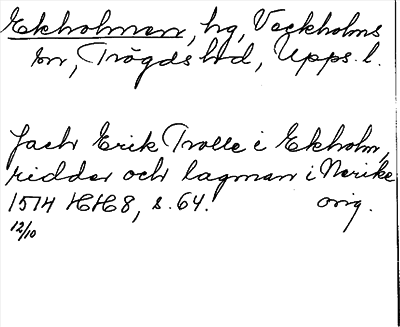 Ekholmen, hg, Veckholms
sn, Trögds hd, Upps. l.
Jacb Erik Trolle i Ekholm,
riddar och lagman i Nerike
1514 HH8, s. 64. orig.
12/10